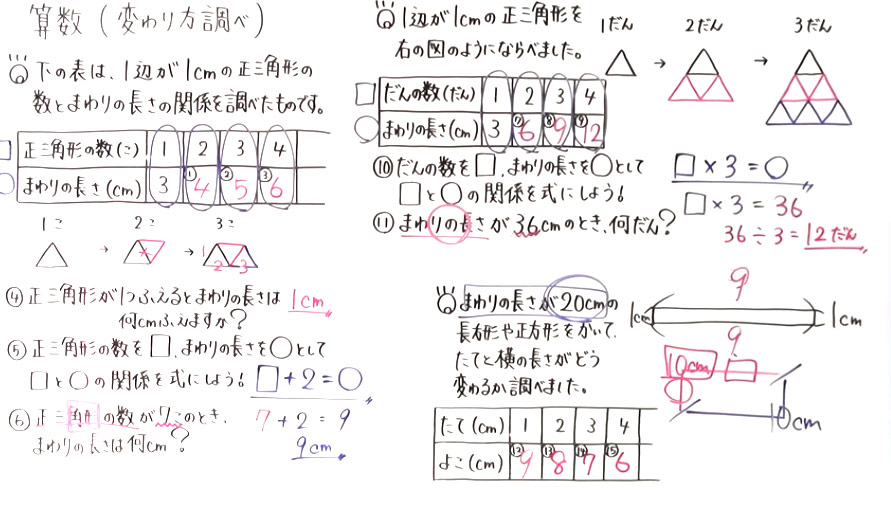 算数(変わり方調べ)
下の表は、1辺が1cmの正三角形の
数とまわりの長さの関係を調べたものです。
□ 正三角形の数(こ) 1 2 3 4
○ まわりの長さ(cm) 3 ①4 ②5 ③6
1こ 2こ 3こ
→ →
1 2 3
④正三角形が1つふえるとまわりの長さは
何cmふえますか? 1cm
⑤正三角形の数を□、まわりの長さを○として
□と○の関係を式にしよう! □+2=○
⑥正三角形の数が7このとき、 7+2=9
まわりの長さは何cm? 9cm
1辺が1cmの正三角形を
右の図のようにならべました。
1だん 2だん 3だん
→ →
□ だんの数(だん) 1 2 3 4
○ まわりの長さ(cm) 3 ⑦6 ⑧9 ⑨12
⑩だんの数を□、まわりの長さを○として
□と○の関係を式にしよう! □×3=○
⑪まわりの長さが36cmのとき、何だん?
□×3=36
36÷3=12だん
まわりの長さが20cmの
長方形や正方形をかいて、
たてと横の長さがどう
変わるか調べました。
9
1cm 1cm
9
10cm
10cm
たて(cm) 1 2 3 4
よこ(cm) ⑫9 ⑬8 ⑭7 ⑮6